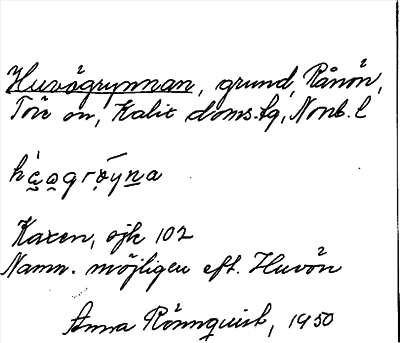 Huvögrynnan, grund, Rånön,
Töre sn, Kalix doms.tg, Norrb. l
Karen, sjk 102
Namn. möjligen eft. Huvön
Anna Rönnquist, 1950